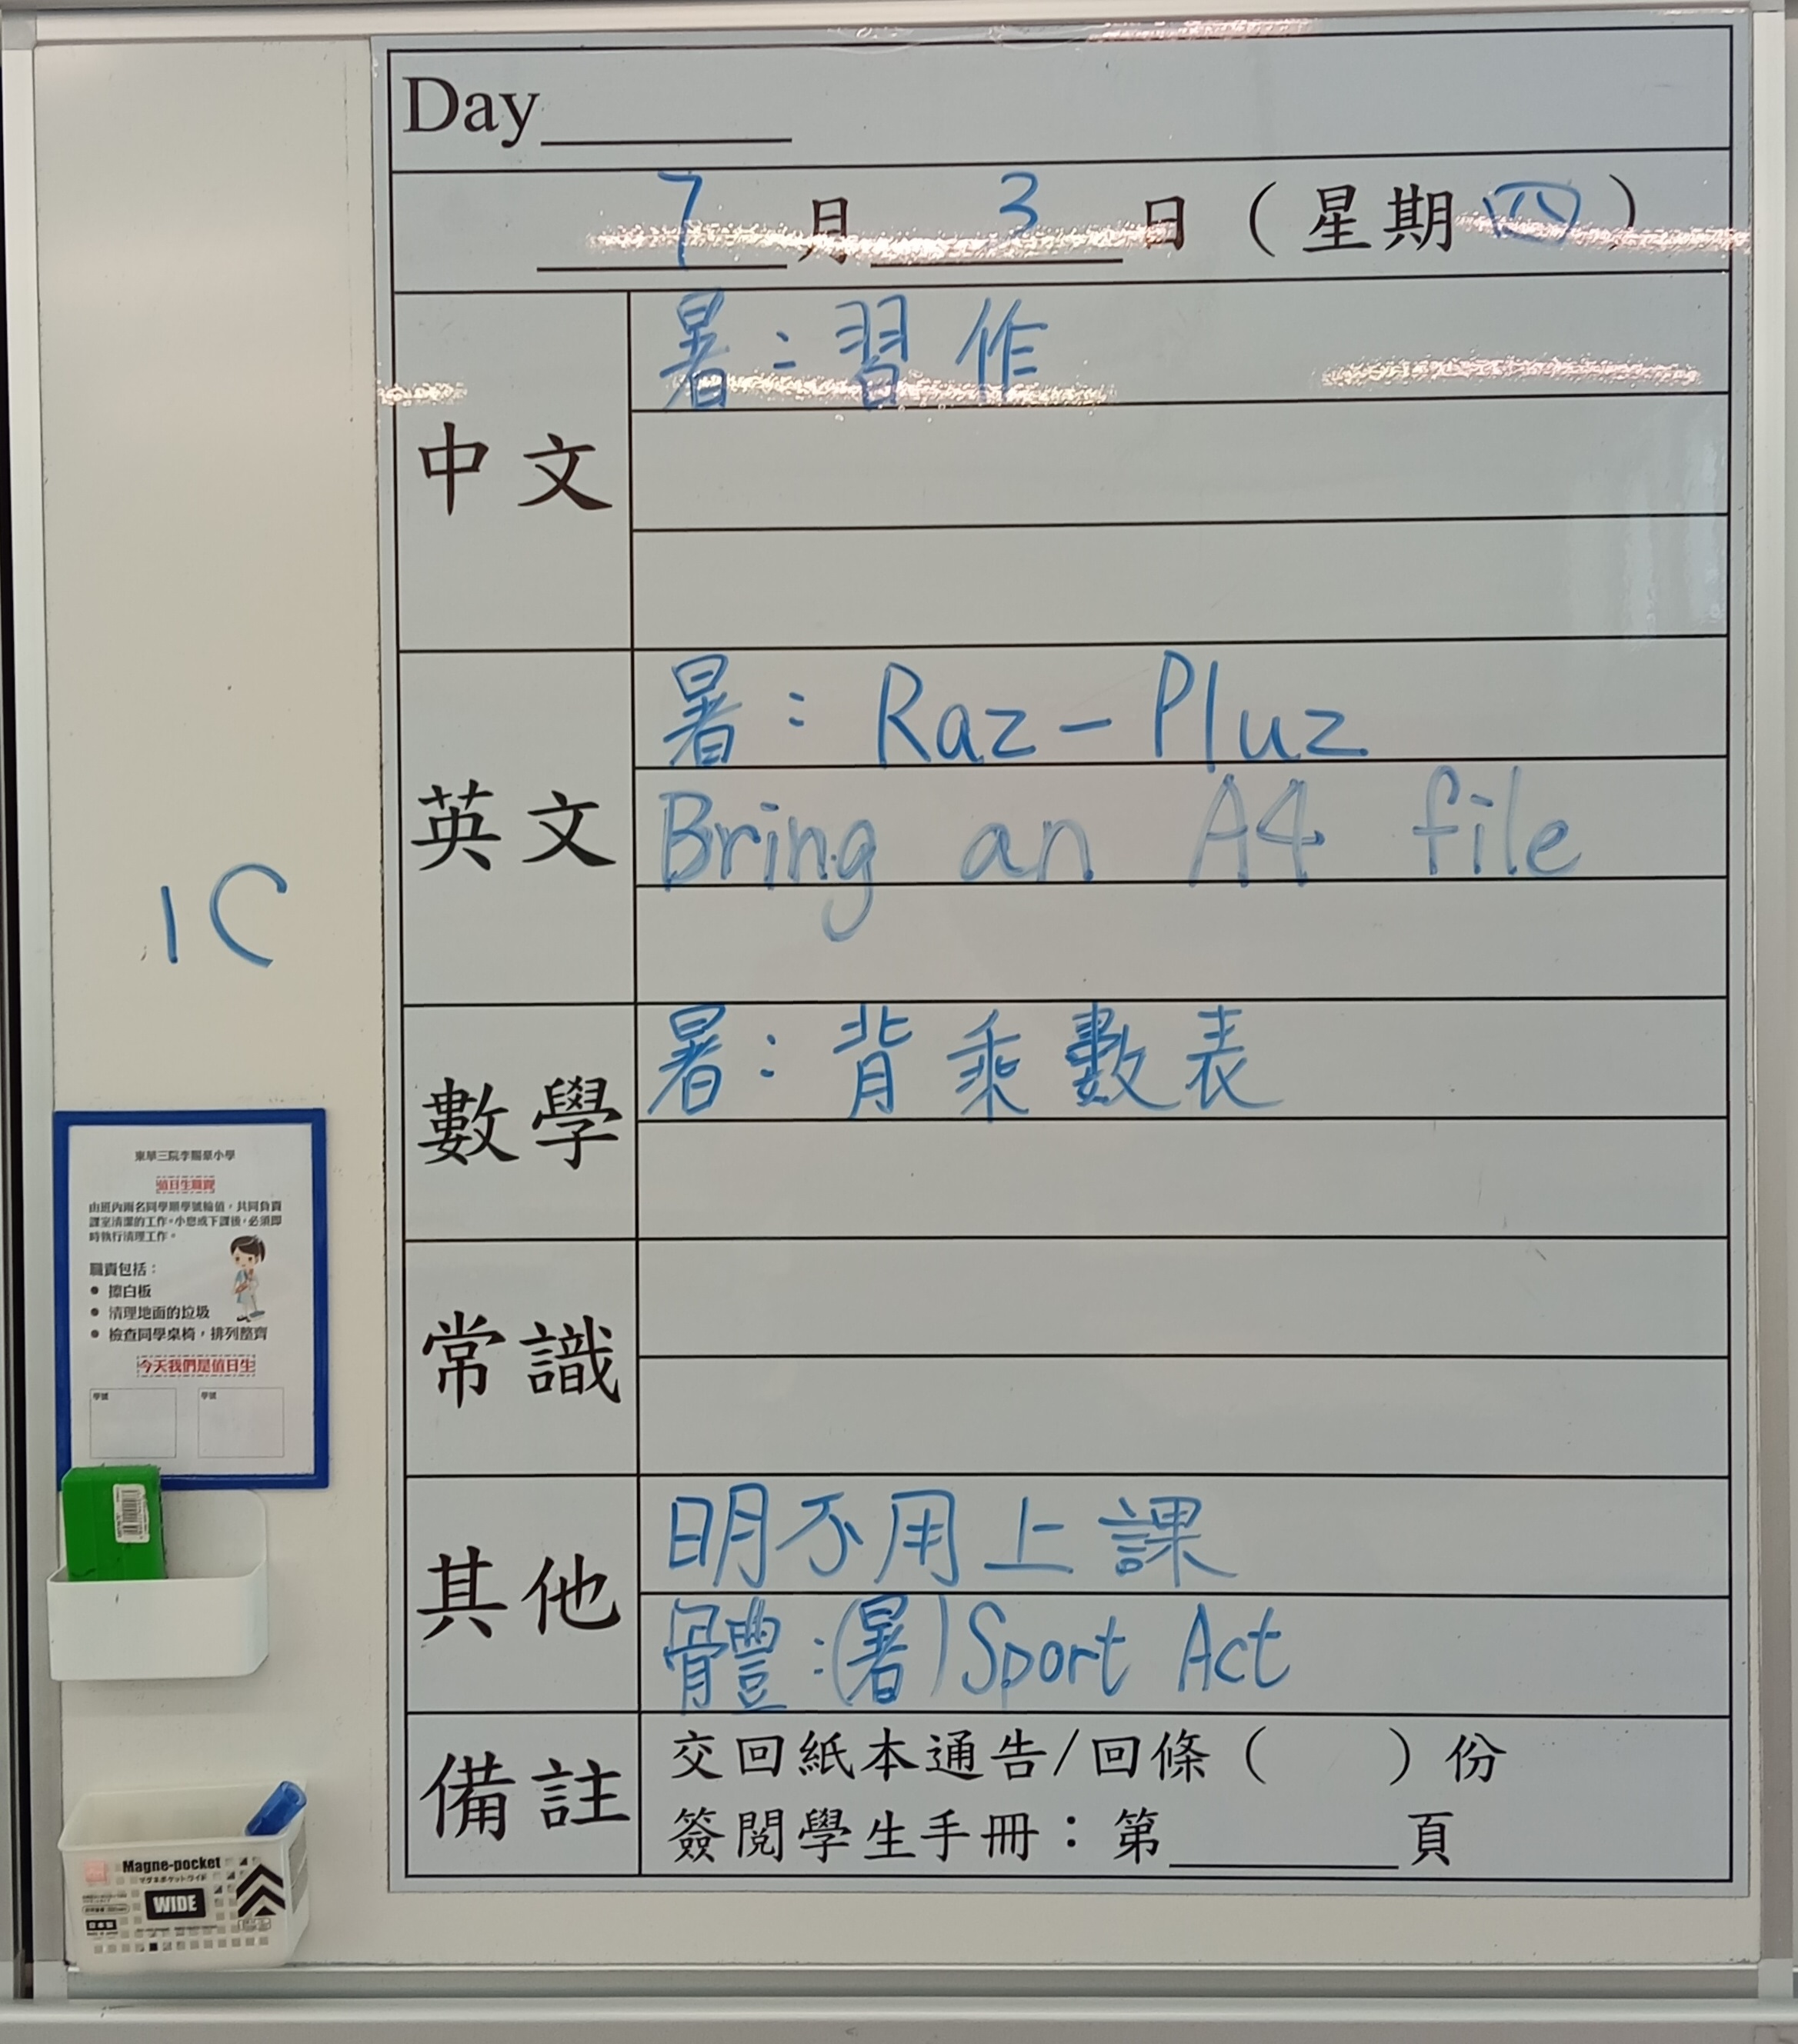 Day
7月3日（星期四）
中文
暑：習作
英文
暑：Raz-Pluz
Bring an A4 file
數學
暑：背乘數表
常識
其他
明不用上課
體：(暑)Sport Act
備註
交回紙本通告/回條（ ）份
簽閱學生手冊：第 頁
1C
東華三院李賜豪小學
值日生職責
由班內兩名同學順學號輪值，共同負責
課室清潔的工作。小息或下課後，必須即
時執行清理工作。
職責包括：
● 擦白板
● 清理地面的垃圾
● 檢查同學桌椅，排列整齊
今天我們是值日生
學號 學號
Magne-pocket
マグネポケットワイド
WIDE
日本製